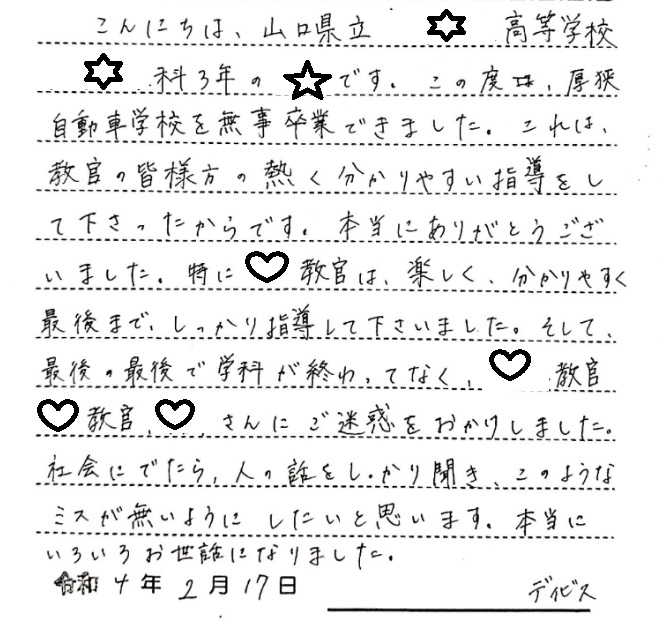 こんにちは、山口県立 高等学校
科3年の です。この度は、厚狭
自動車学校を無事卒業できました。これは、
教官の皆様方の熱く分かりやすい指導をし
て下さったからです。本当にありがとうござ
いました。特に 教官は、楽しく、分かりやすく
最後まで、しっかり指導して下さいました。そして、
最後の最後で学科が終わってなく、 教官
教官、 、さんにご迷惑をおかけしました。
社会にでたら、人の話をしっかり聞き、このような
ミスが無いようにしたいと思います。本当に
いろいろお世話になりました。
令和4年2月17日
デイビス